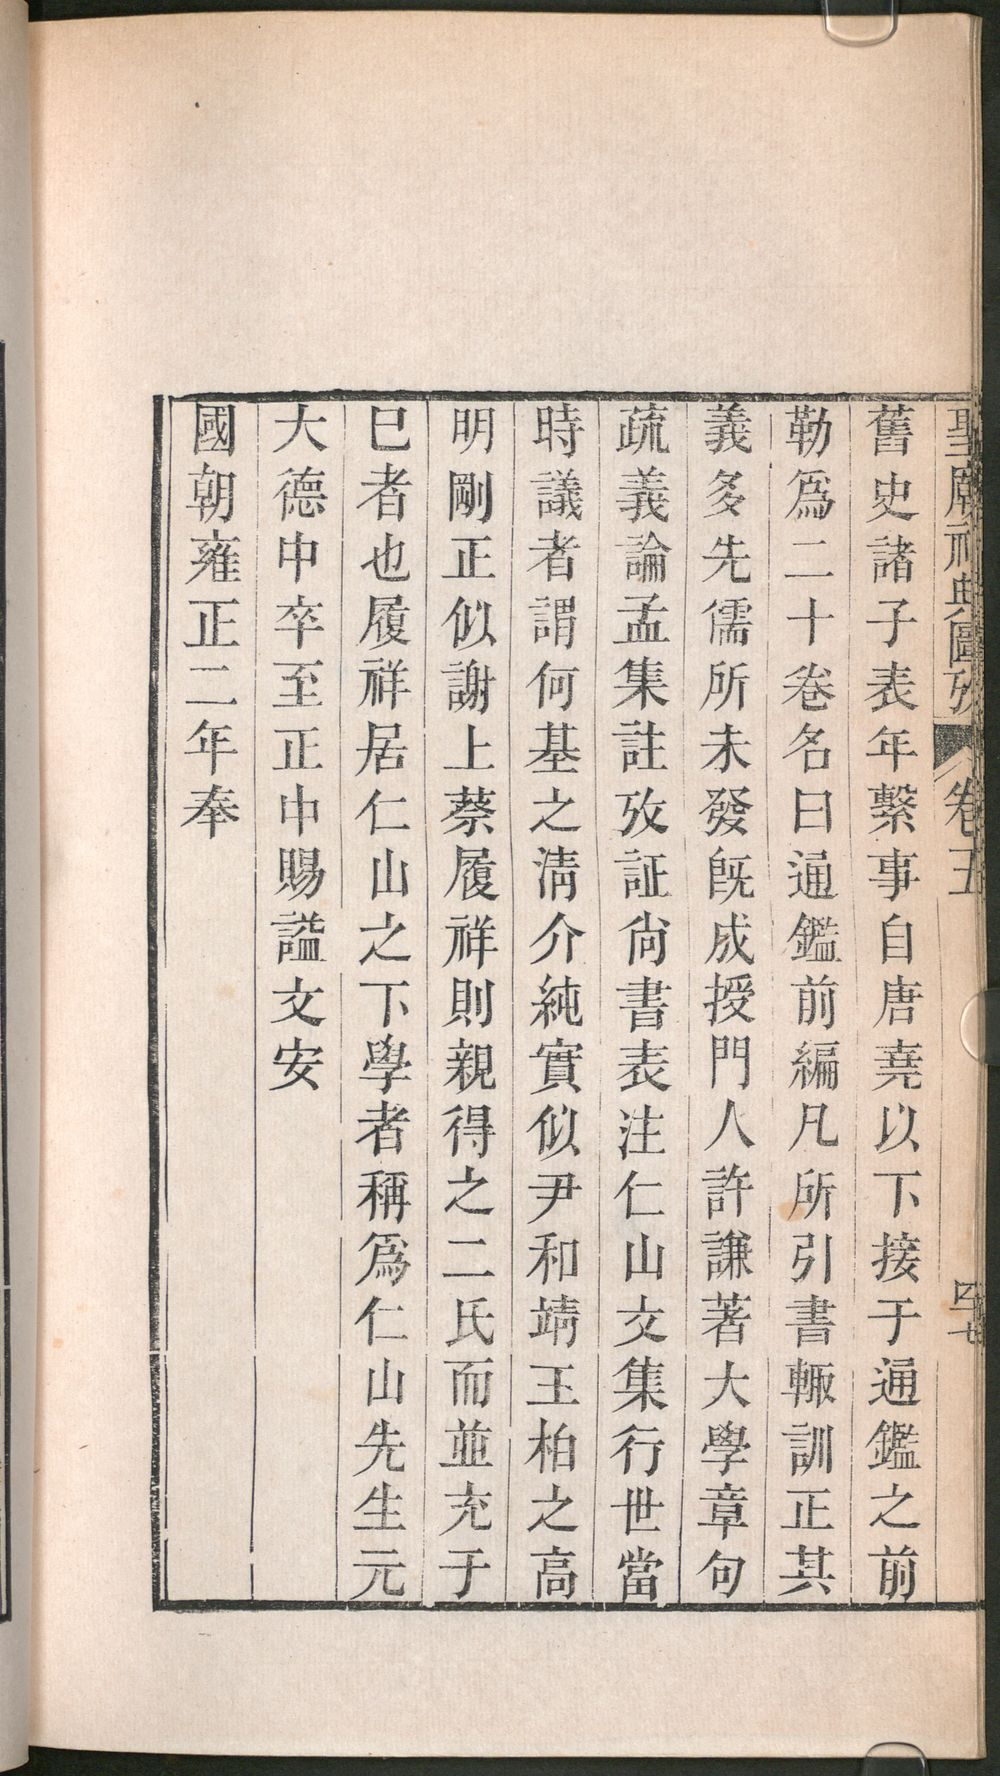 聖廟祀典圖攷 卷五 四七
舊史諸子表年繫事自唐堯以下接于通鑑之前
勒爲二十卷名曰通鑑前編凡所引書輙訓正其
義多先儒所未發旣成授門人許謙著大學章句
疏義論孟集註攷証尙書表注仁山文集行世當
時議者謂何基之淸介純實似尹和靖王柏之高
明剛正似謝上蔡履祥則親得之二氏而並充于
巳者也履祥居仁山之下學者稱爲仁山先生元
大德中卒至正中賜謚文安
國朝雍正二年奉